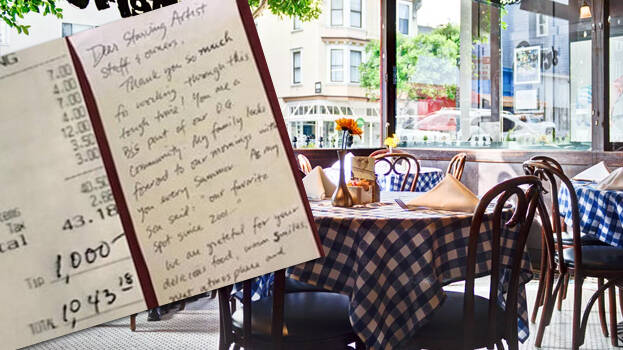 NG
7.00
4.00
7.00
4.00
12.00
3.00
3.00
40.50
Tax
43.18
TIP 1,000-
TOTAL 1,043.18
Dear Starving Artist
staff & owners,
Thank you so much
for working through this
tough time! You are a
big part of our O.C.
community. My family looks
forward to our mornings with
you every summer. As my
son said, "our favorite
spot since
We are grateful for your
delicious food, warm smiles,
great atmosphere and